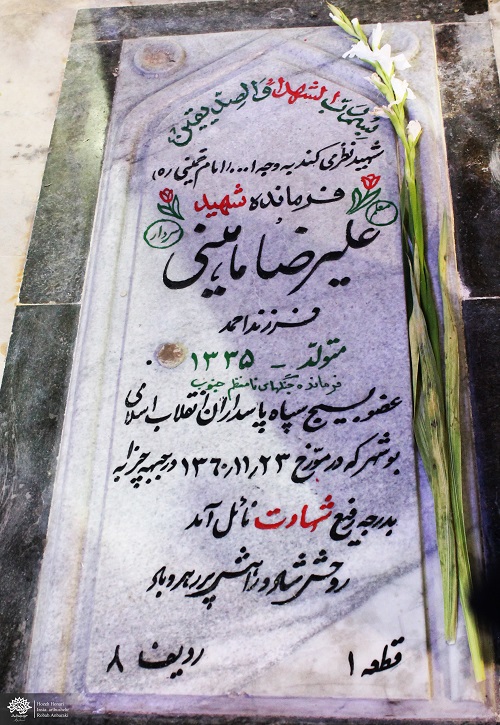 بسم رب الشهداء والصدیقین
شهید نظر می کند به وجه ا... (امام خمینی ره)
فرمانده شهید
سردار
علیرضا ماهینی
فرزند احمد
متولد - ۱۳۳۵
فرمانده جنگهای نامنظم جنوب
عضو بسیج سپاه پاسداران انقلاب اسلامی
بوشهر که در مورخ ۱۳۶۰,۱۱,۲۳ در جبهه چزابه
بدرجه رفیع شهادت نائل آمد
روحش شاد و راهش پر رهرو باد
قطعه ۱ ردیف ۸